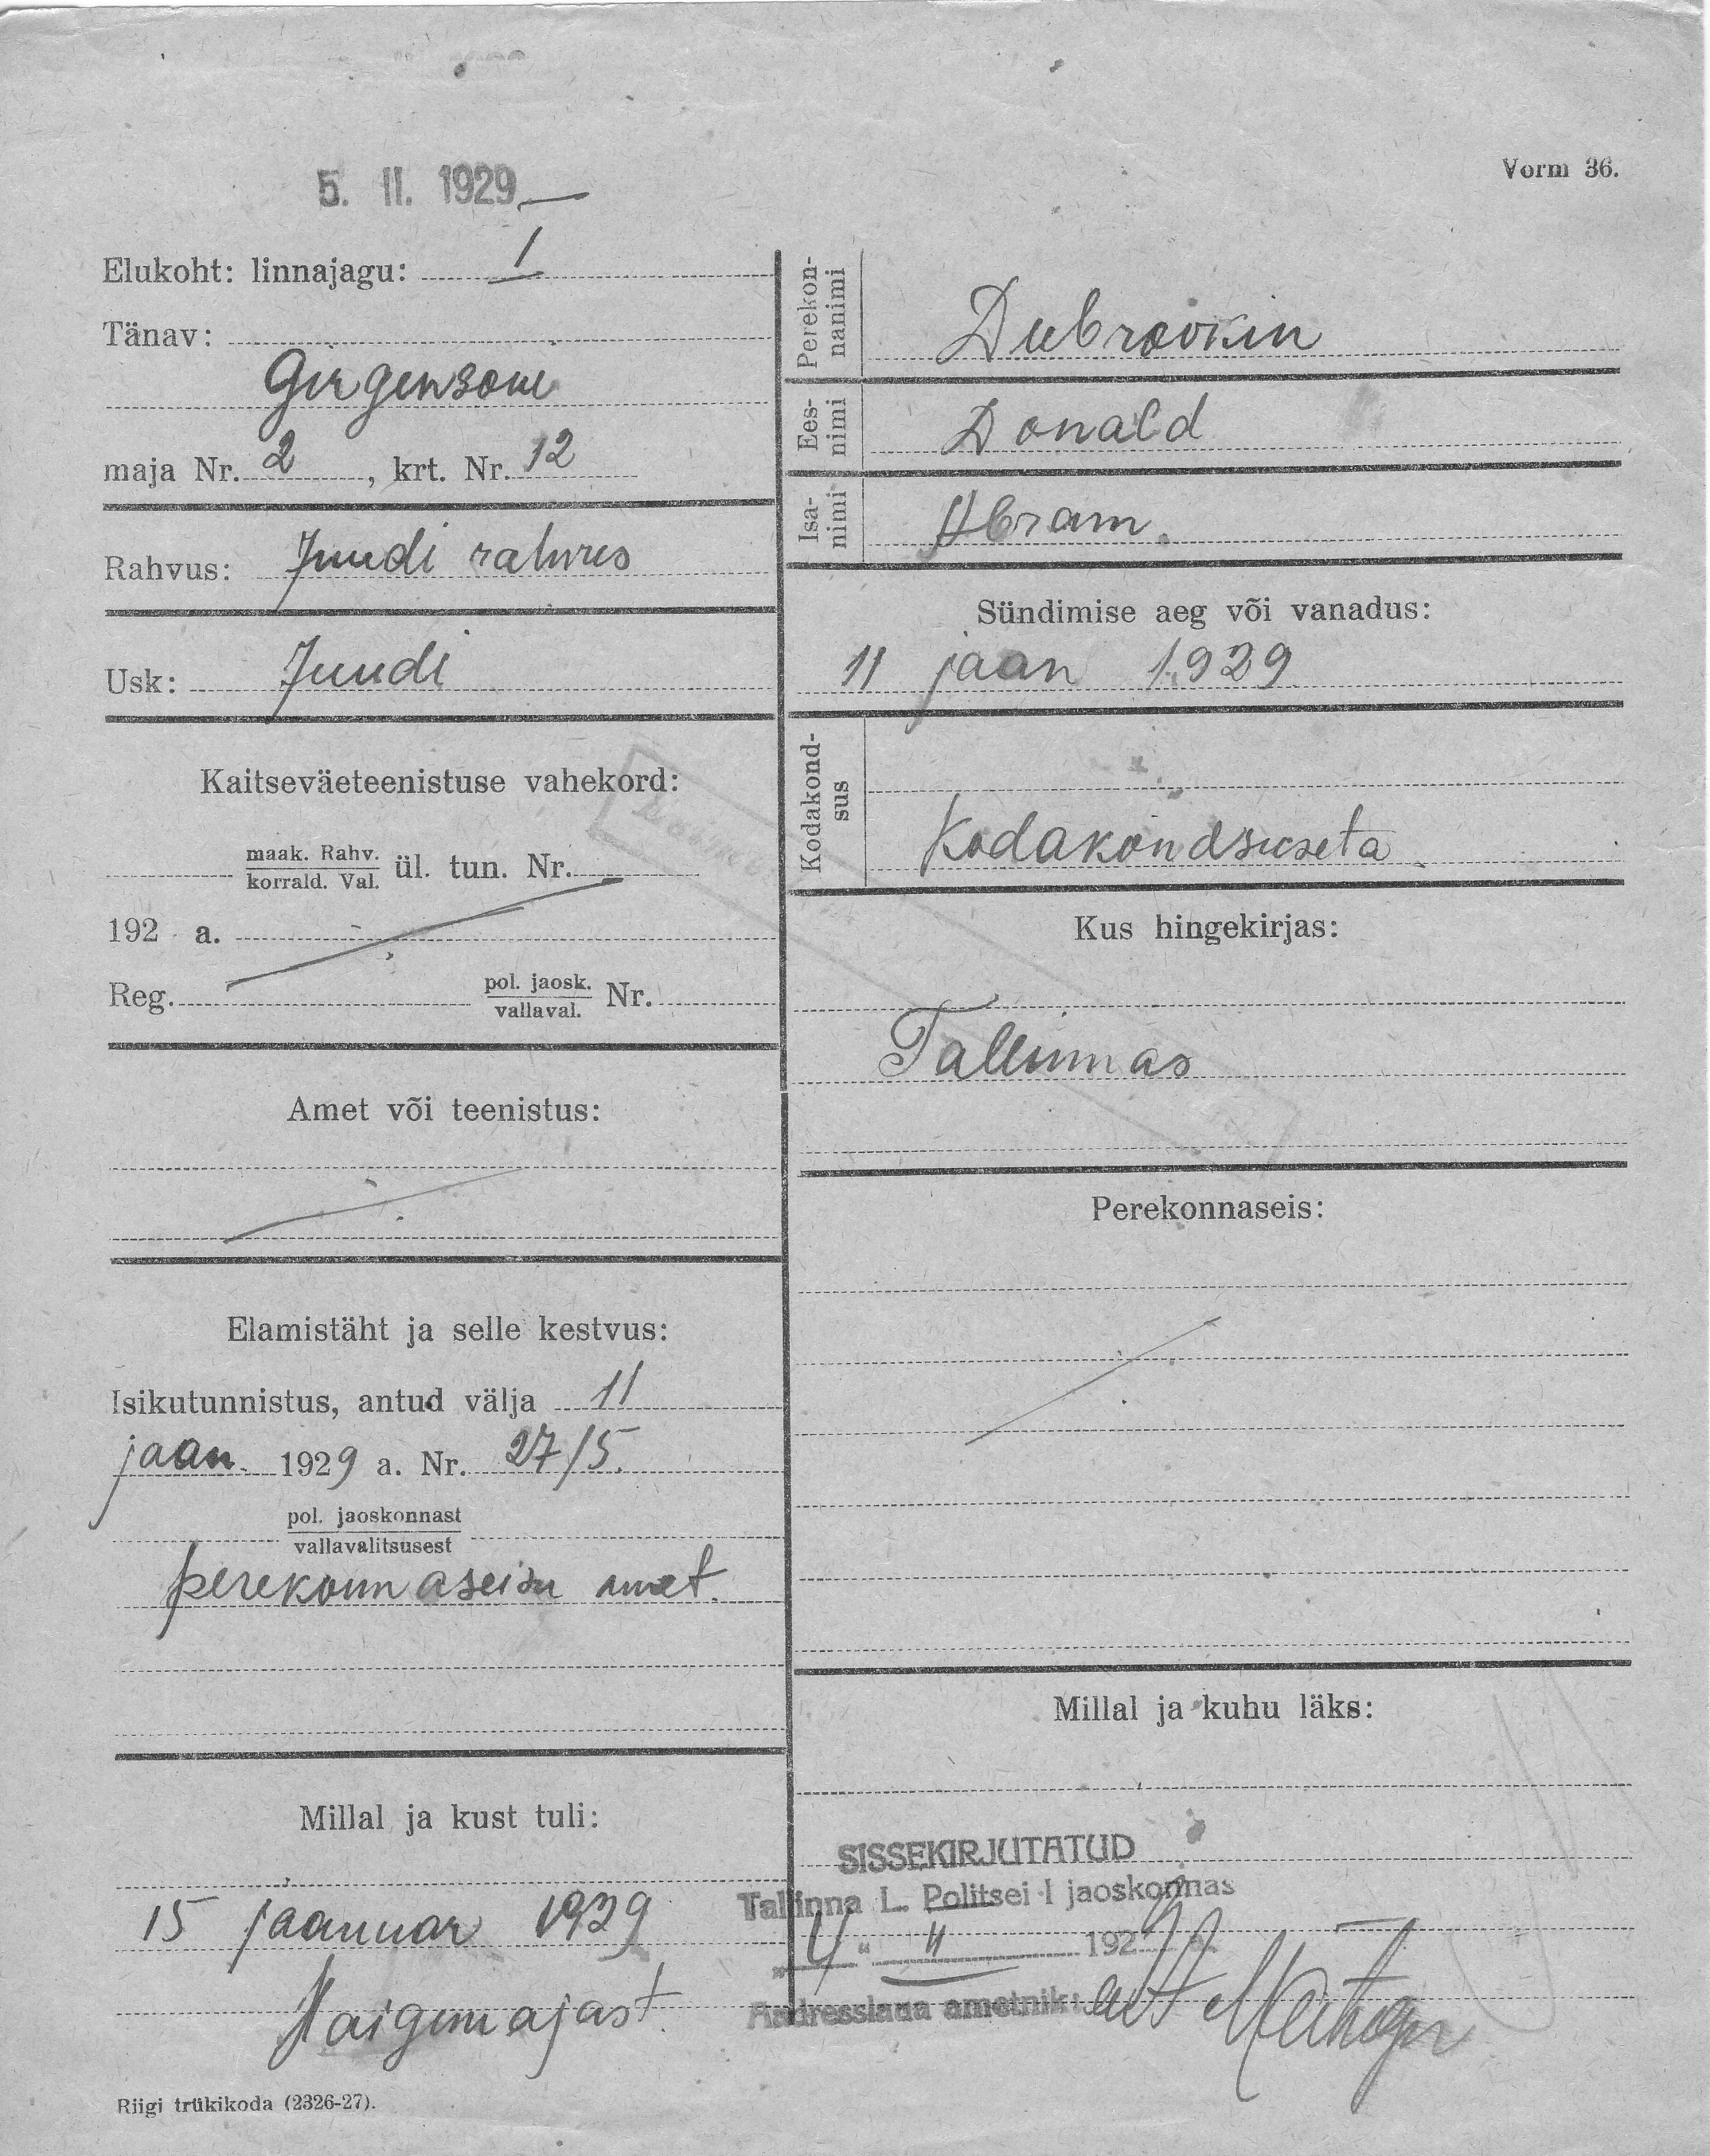 5. II. 1929
Vorm 36.
Elukoht: linnajagu: I
Tänav:
Girgensoni
maja Nr. 2, krt. Nr. 12
Rahvus: Juudi rahvus
Usk: Juudi
Kaitseväeteenistuse vahekord:
maak. Rahv.
korrald. Val. ül. tun. Nr.
192 a.
Reg. pol. jaosk.
vallaval. Nr.
Amet või teenistus:
Elamistäht ja selle kestvus:
Isikutunnistus, antud välja 11
jaan. 1929 a. Nr. 27/5.
pol. jaoskonnast
vallavalitsusest
perekonnaseisu amet.
Millal ja kust tuli:
15 jaanuar 1929
Haigemajast.
Riigi trükikoda (2326-27).
Perekon-
nanimi Dubrovkin
Ees-
nimi Donald
Isa-
nimi Abram.
Sündimise aeg või vanadus:
11 jaan 1929
Kodakond-
sus
Kodakondsuseta
Kus hingekirjas:
Tallinnas
Perekonnaseis:
Millal ja kuhu läks:
SISSEKIRJUTATUD
Tallinna L. Politsei I jaoskonnas
„4“ II 1929 a.
Adresslaua ametnik: